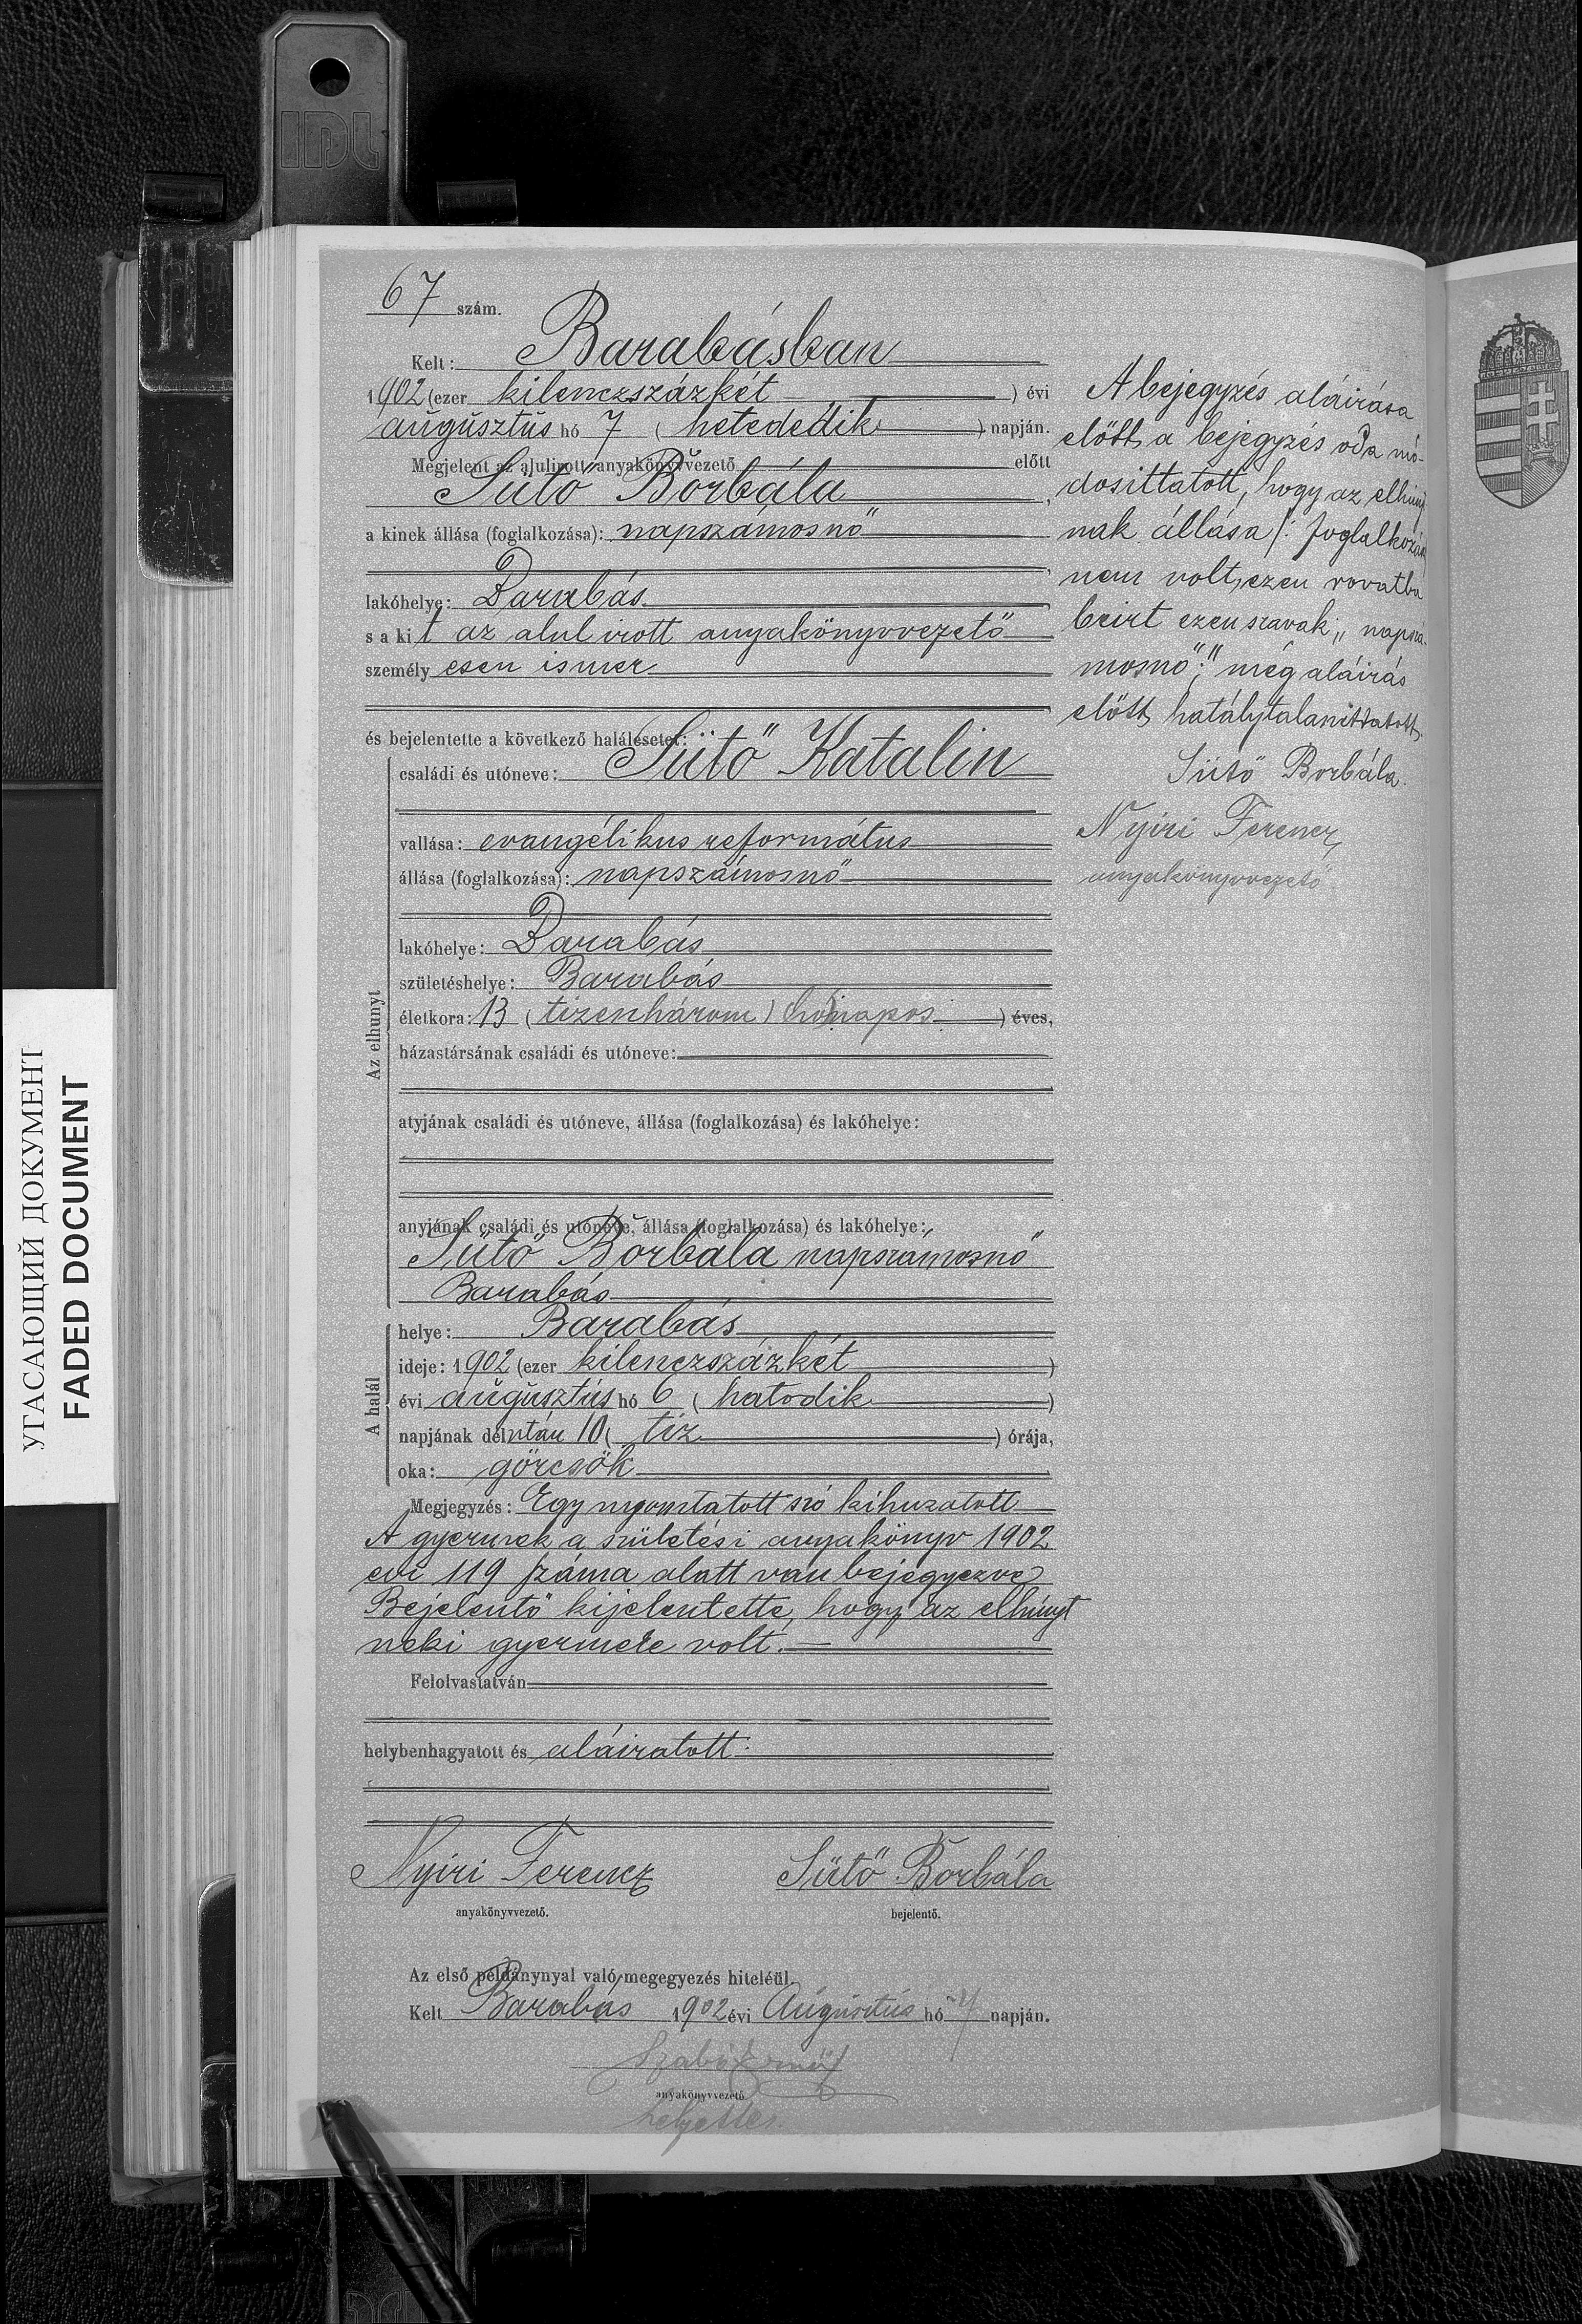 67 szám.
Kelt: Barabásban
1902 (ezer kilenczszázkét ) évi
augusztus hó 7 ( hetededik ) napján.
Megjelent az alulirott anyakönyvvezető előtt
Sütő Borbála,
a kinek állása (foglalkozása): napszámosnő
lakóhelye: Barabás
s a kit az alulirott anyakönyvvezető
személyesen ismer
és bejelentette a következő halálesetet:
Az elhunyt
családi és utóneve: Sütő Katalin
vallása: evangélikus református
állása (foglalkozása): napszámosnő
lakóhelye: Barabás
születéshelye: Barabás
életkora: 13 ( tizenhárom ) hónapos ) éves,
házastársának családi és utóneve:
atyjának családi és utóneve, állása (foglalkozása) és lakóhelye:
anyjának családi és utóneve, állása (foglalkozása) és lakóhelye:
Sütő Borbála napszámosnő
Barabás
A halál
helye: Barabás
ideje: 1902 (ezer kilenczszázkét )
évi augusztus hó 6 ( hatodik )
napjának délután 10 ( tíz ) órája,
oka: görcsök
Megjegyzés: Egy nyomtatott szó kihuzatott
A gyermek a születési anyakönyv 1902
évi 119 száma alatt van bejegyezve
Bejelentő kijelentette, hogy az elhúnyt
neki gyermeke volt.
Felolvastatván
helybenhagyatott és aláiratott.
Nyiri Ferencz Sütő Borbála
anyakönyvvezető. bejelentő.
Az első példánynyal való megegyezés hiteléül.
Kelt Barabás 1902 évi Augusztus hó 7 napján.
Szabó
anyakönyvvezető
helyettes.
A bejegyzés aláirása
előtt a bejegyzés oda mó-
dosittatott, hogy az elhúnyt
nak állása /: foglalkozása
nem volt, ezen rovatba
beirt ezen szavak „napszá-
mosnő" még aláirás
előtt hatálytalanittatott.
Sütő Borbála.
Nyiri Ferencz
anyakönyvvezető
УГАСАЮЩИЙ ДОКУМЕНТ
FADED DOCUMENT
IDL